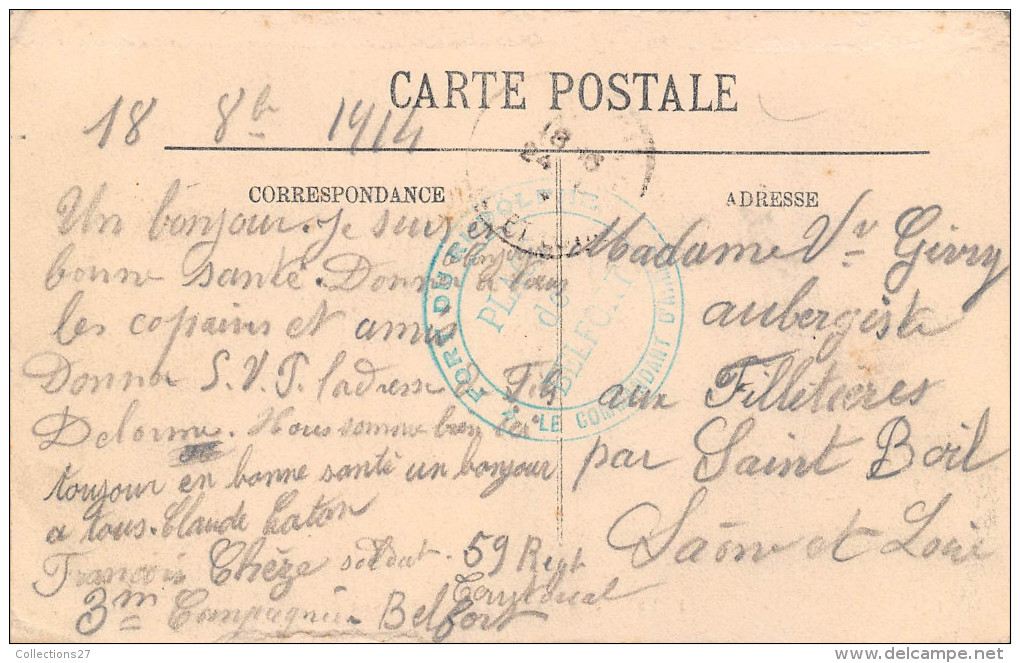 CARTE POSTALE
18 8bre 1914
CORRESPONDANCE
Un bonjour. Je suis en
bonne santé. Donne bonjour a tous
les copains et amis
Donner S.V.P. l'adresse Fils
Delorme. Nous somme bien ici
toujour en bonne santé un bonjour
a tous. Claude Caton
François Chèze soldat. 59 Regt
Terrytorial
3m Compagnie Belfort
ADRESSE
Madame Vv Givry
aubergiste
aux Filletieres
par Saint Boil
Saône et Loire
FORT DU
PLACE
de
BELFORT
LE COMMANDANT D'ARMES
18
24
Collections27
www.delcampe.net